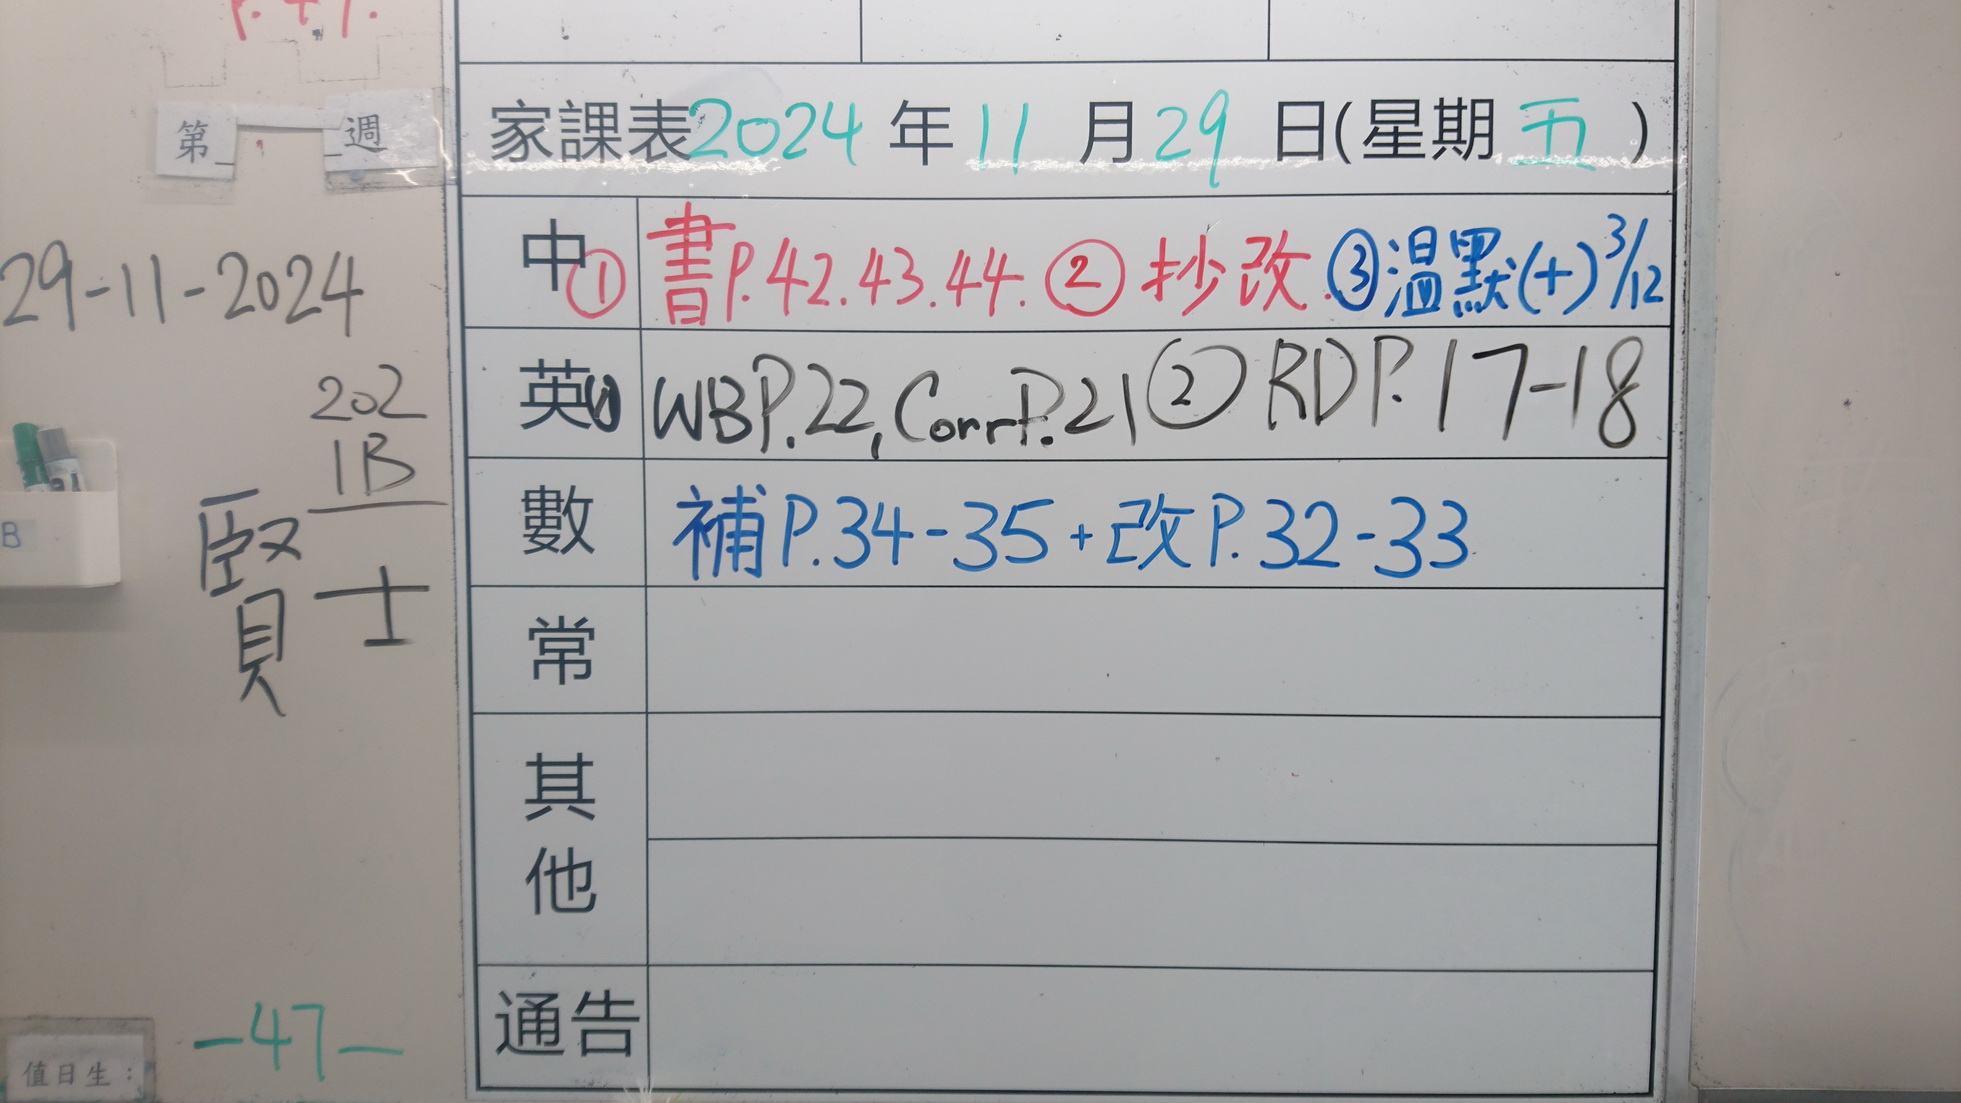 第_ _週
家課表2024年11月29日(星期五)
29-11-2024
中 ①書P.42.43.44. ②抄改. ③溫默(十)3/12
202
1B
英 ①WBP.22, Corr P.21 ②RDP.17-18
賢士
數 補P.34-35+改P.32-33
常
其他
通告
-47-
值日生:
B